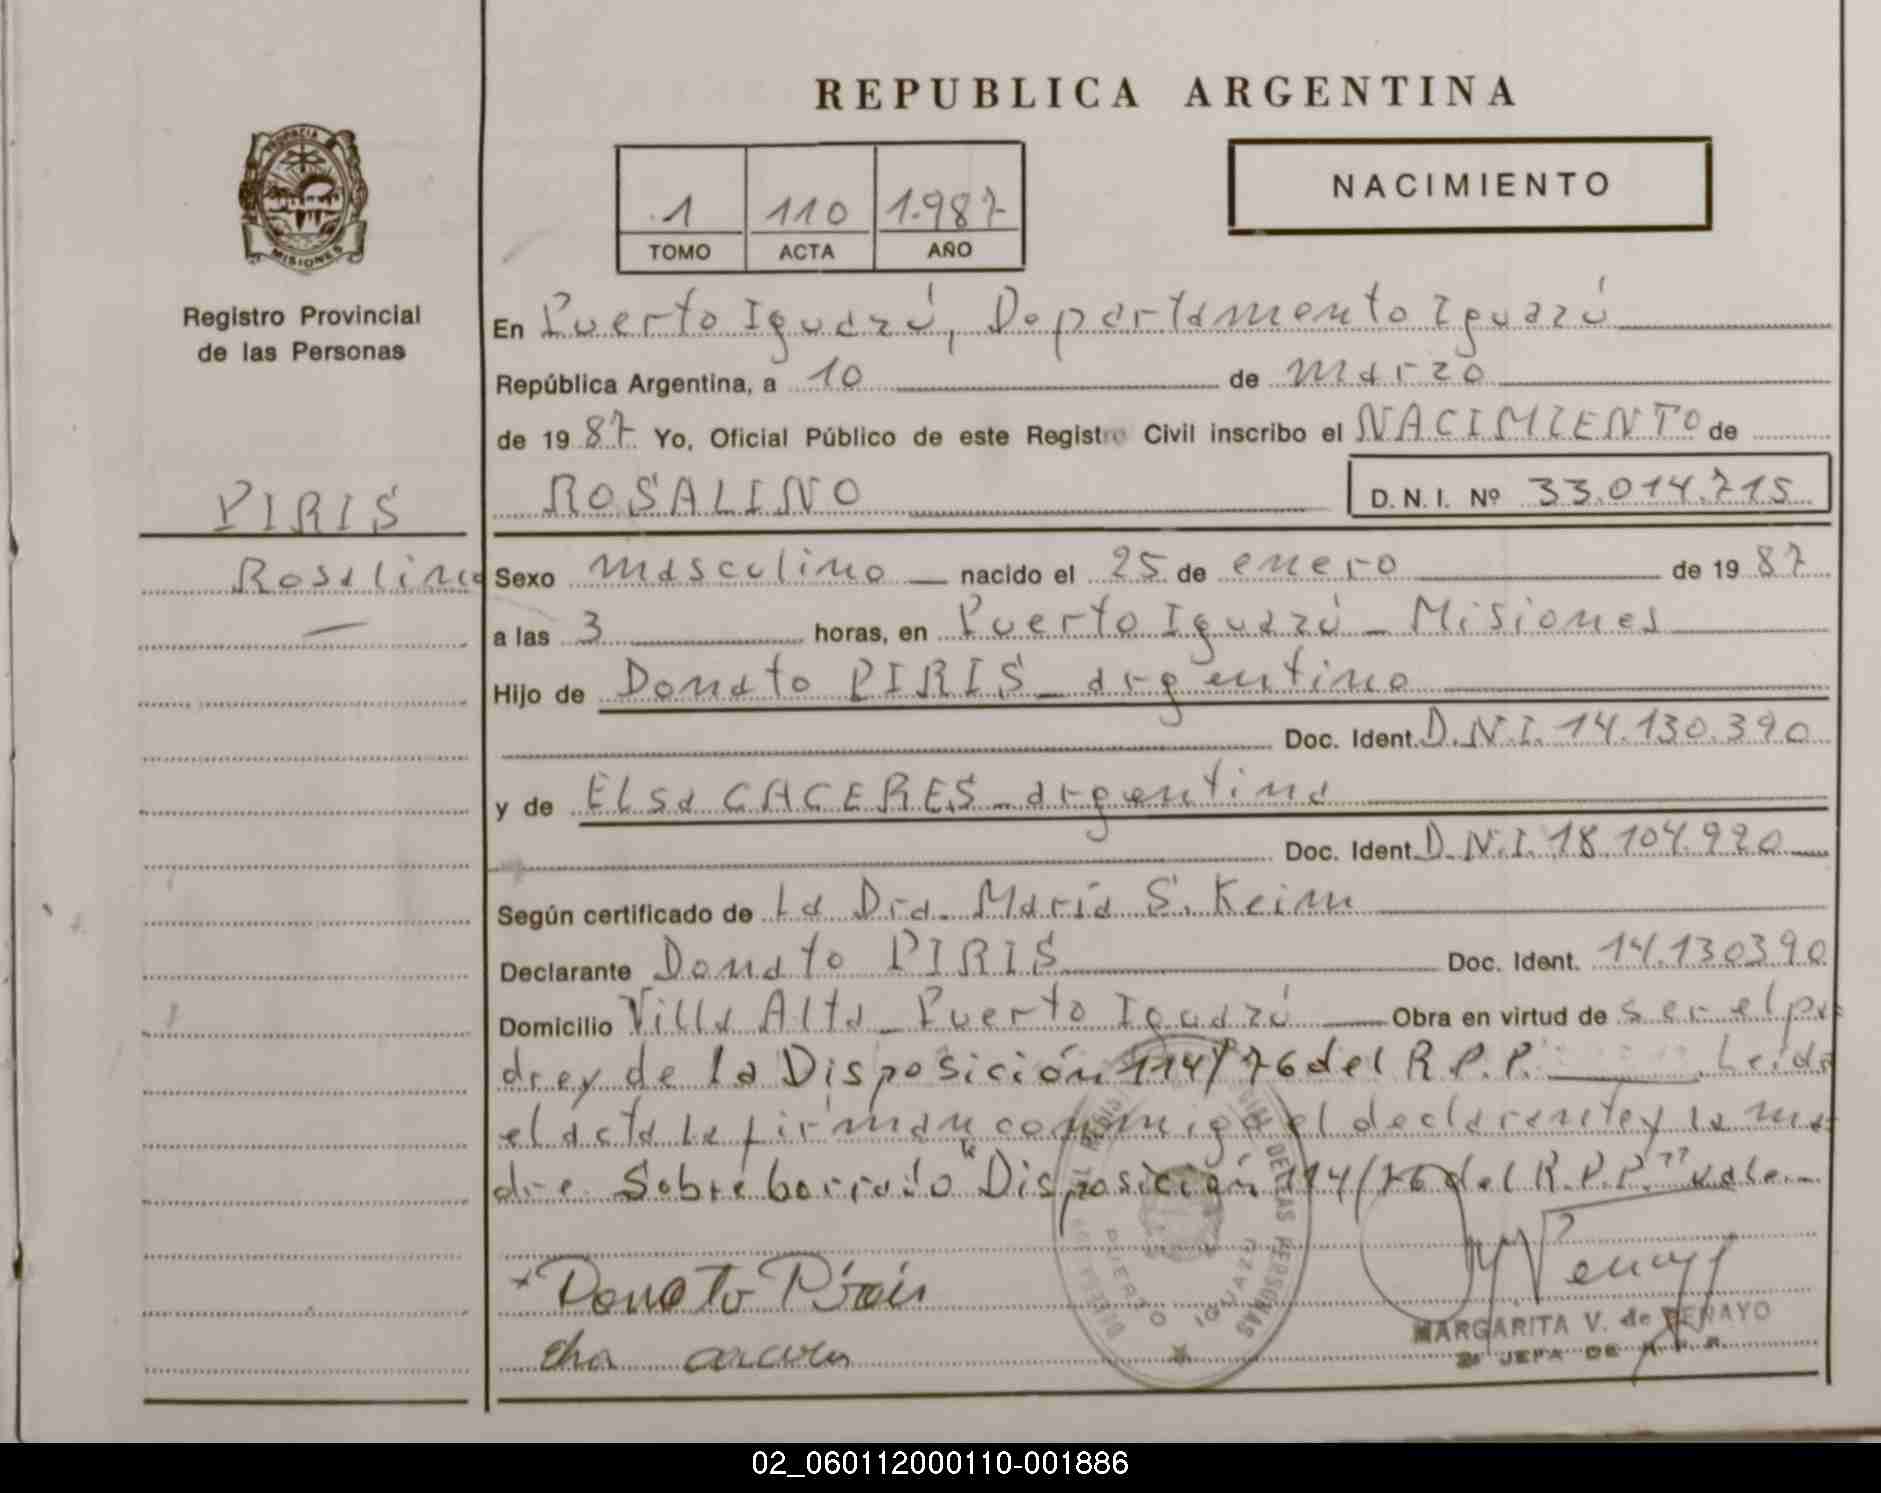 REPUBLICA ARGENTINA
PROVINCIA
MISIONES
Registro Provincial
de las Personas
1 110 1.987
TOMO ACTA AÑO
NACIMIENTO
En Puerto Iguazú, Departamento Iguazú
República Argentina, a 10 de marzo
de 1987 Yo, Oficial Público de este Registro Civil inscribo el NACIMIENTO de
ROSALINO D.N.I. Nº 33.014.715
PIRIS
Rosalino
Sexo masculino nacido el 25 de enero de 1987
a las 3 horas, en Puerto Iguazú - Misiones
Hijo de Donato PIRIS - argentino
Doc. Ident. D.N.I. 14.130.390
y de Elsa CACERES - argentina
Doc. Ident. D.N.I. 18.104.920
Según certificado de La Dra. María S. Keim
Declarante Donato PIRIS Doc. Ident. 14.130390
Domicilio Villa Alta - Puerto Iguazú Obra en virtud de ser el pa
dre y de la Disposición 114/76 del R.P.P. Leída
el acta la firman conmigo el declarante y la ma
dre. Sobre borrado "Disposición 114/76 del R.P.P." vale.
DE LAS PERSONAS
PUERTO IGUAZU
Donato Piris
MARGARITA V. de PENAYO
2ª JEFA DE
02_060112000110-001886